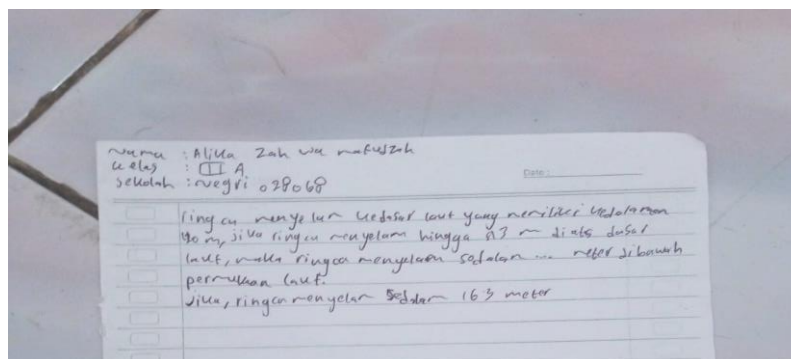 nama : Alika Zah wa nafuszah
kelas : III A
sekolah : Negri 028068
Date :
ringca menyelam kedasar laut yang memiliki kedalaman
90 m, jika ringca menyelam hingga 23 m diats dasar
laut, maka ringca menyelam sedalam ... meter dibawah
permukaan laut.
Jika, ringca menyelam sedalam 163 meter